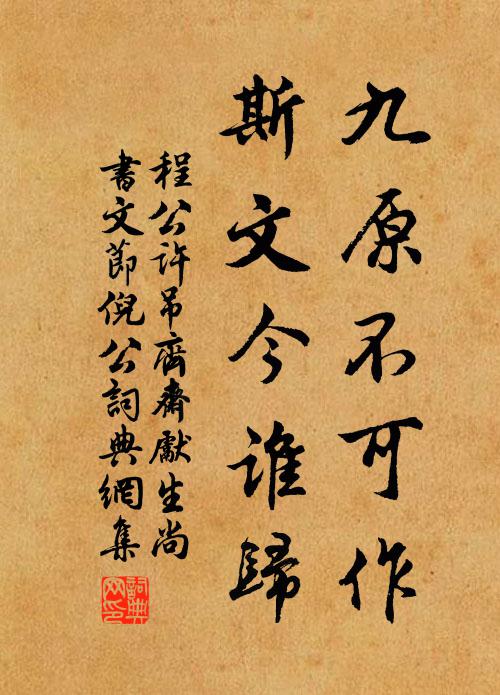 九原不可作
斯文今誰歸
程公許吊齊齋獻生尚
書文節倪公詞典網集
詞典網印